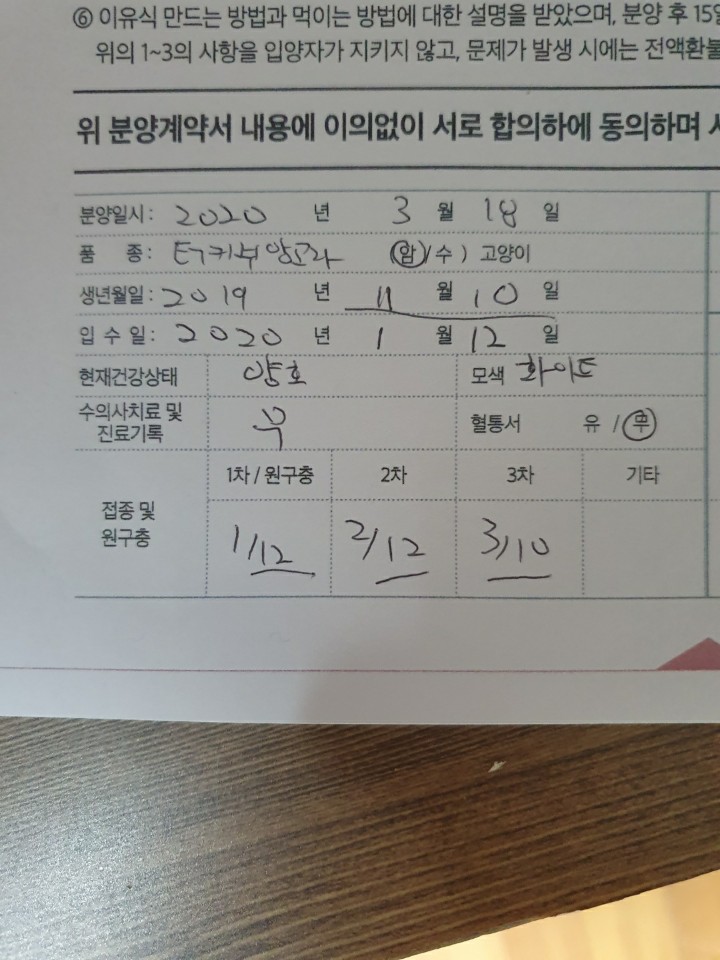 ⑥ 이유식 만드는 방법과 먹이는 방법에 대한 설명을 받았으며, 분양 후 15일
위의 1~3의 사항을 입양자가 지키지 않고, 문제가 발생 시에는 전액환불
위 분양계약서 내용에 이의없이 서로 합의하에 동의하며 서
분양일시 : 2020 년 3 월 18 일
품 종 : 터키쉬앙고라 (암/수) 고양이
생년월일 : 2019 년 11 월 10 일
입 수 일 : 2020 년 1 월 12 일
현재건강상태 양호 모색 화이트
수의사치료 및 진료기록 무 혈통서 유 / 무
접종 및 원구충
1차 / 원구충 2차 3차 기타
1/12 2/12 3/10